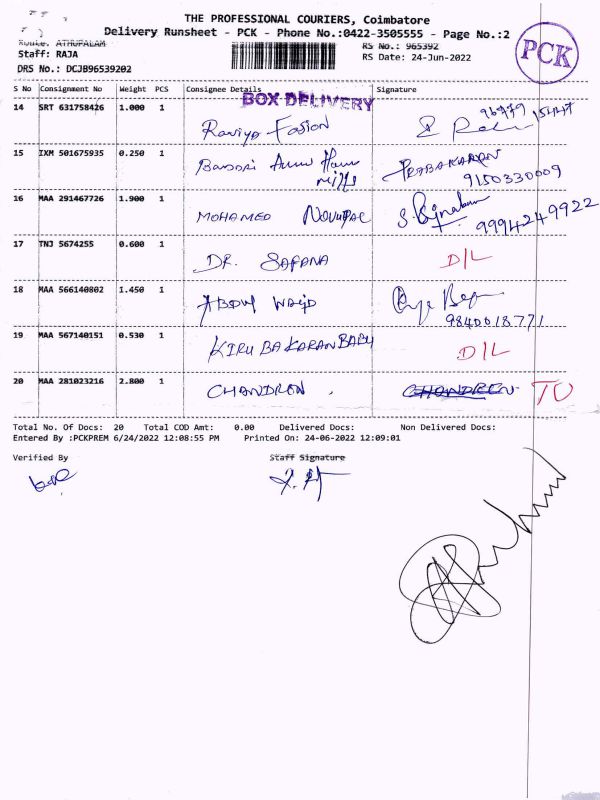 THE PROFESSIONAL COURIERS, Coimbatore
Delivery Runsheet - PCK - Phone No.:0422-3505555 - Page No.:2
Route: ATHUPALAM
RS No.: 965392
PCK
Staff: RAJA
RS Date: 24-Jun-2022
DRS No.: DCJB96539202
S No Consignment No Weight PCS Consignee Details Signature
BOX DELIVERY
14 SRT 631758426 1.000 1
Fasion
15 IXM 501675935 0.250 1
mills
PRABAKARAN
9150330009
16 MAA 291467726 1.900 1
MOHAMED
9994249922
17 TNJ 5674255 0.600 1
DR. SAFANA D/L
18 MAA 566140802 1.450 1
ABDUL WAJID
9840018771
19 MAA 567140151 0.530 1
KIRUBAKARANBABU D/L
20 MAA 281023216 2.800 1
CHANDREN . CHANDREN TO
Total No. Of Docs: 20 Total COD Amt: 0.00 Delivered Docs: Non Delivered Docs:
Entered By :PCKPREM 6/24/2022 12:08:55 PM Printed On: 24-06-2022 12:09:01
Verified By Staff Signature